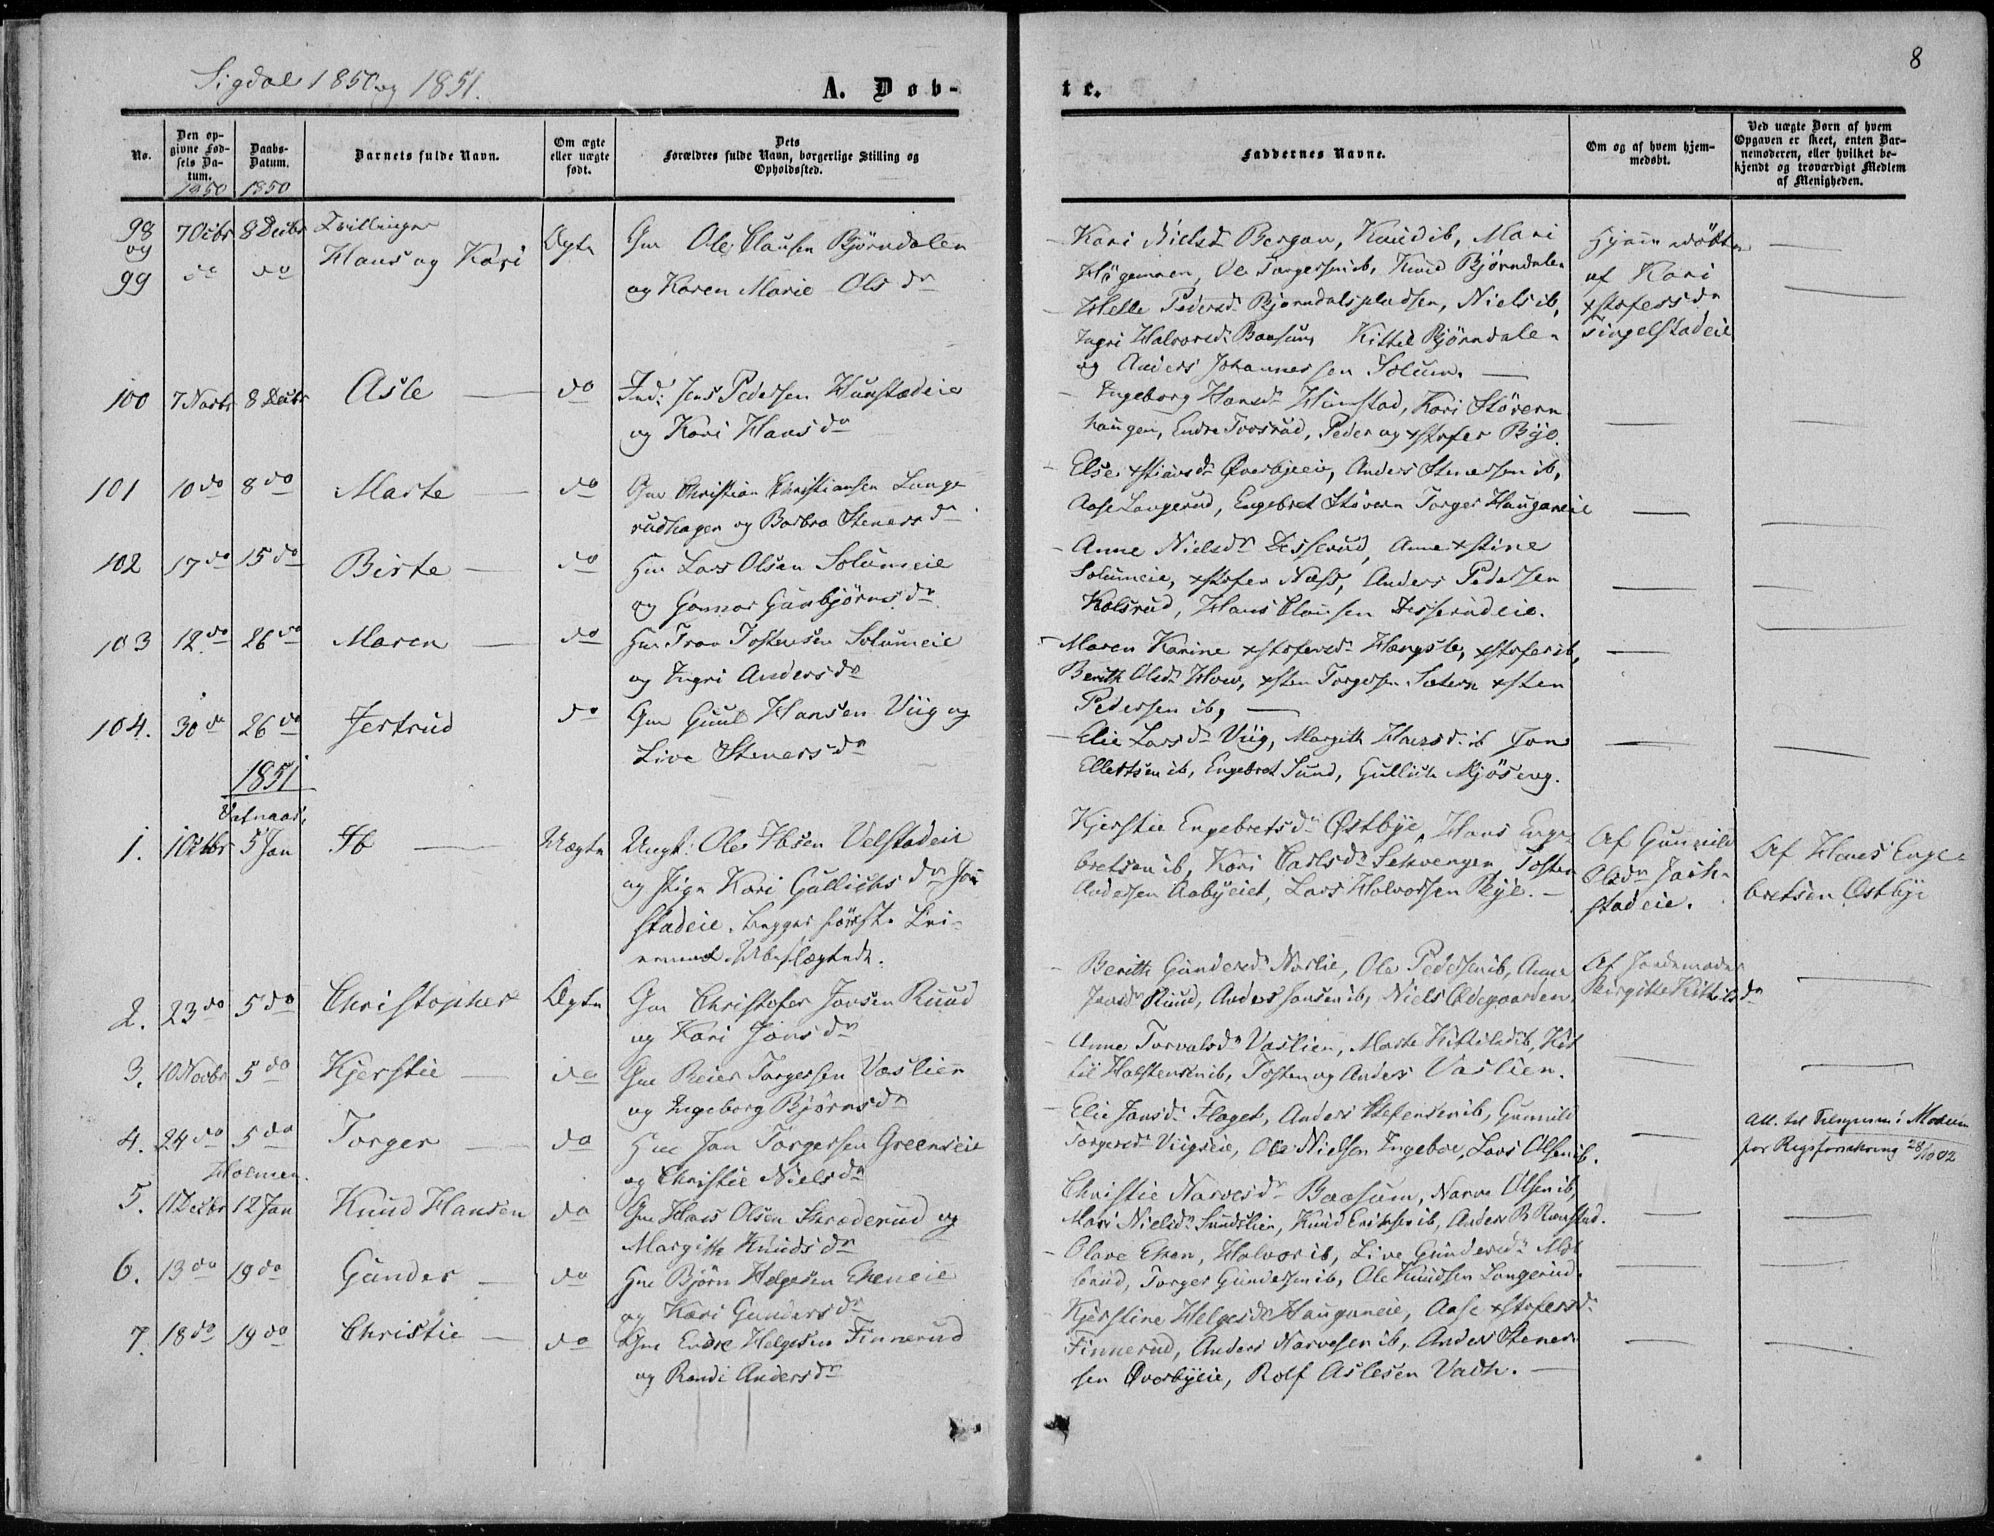 Sigdal 1850 og 1851.
A. Døb-
te.
8
No.
Den op-
givne Fød-
sels Da-
tum.
1850
Daabs-
Datum.
1850
Barnets fulde Navn.
Om ægte
eller uægte
født.
Dets
Forældres fulde Navn, borgerlige Stilling og
Opholdssted.
Faddernes Navne.
Om og af hvem hjem-
medøbt.
Ved uægte Børn af hvem
Opgaven er skeet, enten Bar-
nemoderen, eller hvilket be-
kjendt og troværdigt Medlem
af Menigheden.
98 og 99
7 Octbr 8 Decbr
do do
Tvillinger
Hans og Kari
Ægte
Gm Ole Clausen Bjørndalen
og Karen Marie Ols dr
Kari Nielsd Bergan, Knud ib, Mari
Ole Torgersen ib, Knud Bjørndalen
Helle Pedersd Bjørndalspladsen, Niels ib,
Ingri Halvorsd Baasum, Kittil Bjørndalen
og Anders Johannessen Solum. —
Hjemmedøbte
af Kari
xstofersdr
Singelstadeie
100 7 Novbr 8 Decbr Asle — do
Ind: Jens Pedersen Hunstadeie
og Kari Hans dr
Ingeborg Hansd Hunstad, Kari Støvern
haugen, Endre Toosrud, Peder og xstofer Bye.
101 10 do 8 do Marte — do
Gm Christian Christiansen Lange
rudhagen og Barbro Steners dr
Else xstiansd Øverbyeeie, Anders Stenersen ib,
Aase Langerud, Engebret Støvern Torger Hauganeie
102 17 do 15 do Birte — do
Hm Lars Olsen Solumeie
og Gunnor Gunbjørns dr
Anne Nielsdr Disserud, Anne xstine
Solumeie, xstofer Næss, Anders Pedersen
Kolsrud, Hans Clausen Disserudeie.
103 12 do 26 do Maren — do
Hm Tron Tostensen Solumeie
og Ingri Anders dr
Maren Karine xstofersd Hangsle, xstofer ib,
Berith Olsd Hovr, xsten Torgersen Sætern xsten
Pedersen ib, —
104. 30 do 26 do Jertrud do
Gm Guul Hansen Viig og
Live Steners dr
Elie Larsd Viig, Margith Hansd ib Jens
Ellertsen ib, Engebret Sund, Gullich Mjøseng.
1851
Vatnaas,
1. 1 Octbr 5 Jan Ib — Uægte
Ungk: Ole Ibsen Velstadeie
og Pige Kari Gullichs dr
stadeie. Begges første Lei-
ermaal. Ubeslægtede.
Kjerstie Engebretsd Østbye, Hans Enge-
bretsen ib, Kari Carlsd Tosten
Andersen Aabyeiet, Lars Halvorsen Bye. —
Af Gunnild
Olsdr
stadeie.
Af Hans Enge-
bretsen Østbye
2. 23 do 5 do Christopher Ægte
Gm Christofer Jonsen Ruud
og Kari Jons dr
Berith Gundersd Norlie, Ole Pedersen ib, Anne
Jonsdr Ruud, Anders Jonsen ib, Niels Ødegaarden.
Af Jordemoder
Birgitte Kittilsdr
3. 10 Novbr 5 do Kjerstie — do
Gm Reier Torgersen Vaslien
og Ingeborg Bjørns dr
Anne Torvalsdr Vaslien, Marte Kittilsd ib, Kit
til Halstensen ib, Tosten og Anders Vaslien.
4. 24 do 5 do Torger — do
Hm Jan Torgersen Greenseie
og Christie Niels dr
Elie Jansd Flaget, Anders Stefensen ib, Gunnild
Torgersd Viigseie, Ole Nielsen Ingeboe, Lars Olsen ib.
Att. til Modum
28/10 02
Holmen.
5. 1 Decbr 12 Jan Knud Hansen do
Gm Hans Olsen Skræderud og
Margitte Knuds dr
Christie Narvesdr Baasum, Narve Olsen ib,
Mari Nielsdr Sundslien, Knud Eriksen ib, Anders
6. 13 do 19 do Gunder — do
Hm Bjørn Helgesen Ekeneie
og Kari Gunders dr
Olave Eken, Halvor ib, Live Gundersd Mol
Torger Gundersen ib, Ole Knudsen Langerud.
7. 18 do 19 do Christie — do
Gm Endre Helgesen Finnerud
og Randi Anders dr
Kjerstine Helgesd Hauganeie, Aase xstofersd
Finnerud, Anders Narvesen ib, Anders Stener
sen Øverbyeie, Rolf Aslesen Vadh. —